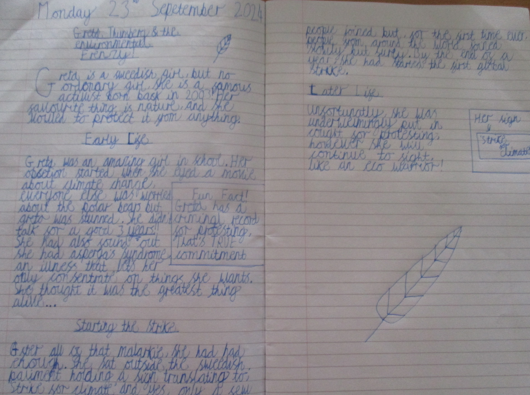 Monday 23rd September 2024
Greta Thunberg & the
environmental
Frenzy!
Greta is a swedish girl, but no
ordonary girl she is a famous
activist born back in 2003. Her
favourive thing is nature and she
would to protect it from anything.
Early Life
Greta was an amazing girl in school. Her
obsetion started when she eyed a movie
about climate change.
everyone else was worried
about the polar bear but
greta was stunned. She didn't
talk for a good 3 years!
She had also found out
she had asbergas syndrome
an illness that let's her
only consentrate on things she wants.
She thought it was the greatest thing
alive...
Fun Fact!
Greta has a
criminal record
for protesting.
That's TRUE
commitment
Starting the Strike
After all of that malarkie, She had had
enough. She sat outside the sweedish
paliment holding a sign translating to:
Strike for climate and yes, only a few
people joined but for the first time ever
people from around the world joined
but by the end of a
year she had the first global
strike.
Later Life
Unfortunatly she was
put in
for protesting.
however she will
continue to fight
like an eco warrior!
Her sign
Strike
Climate